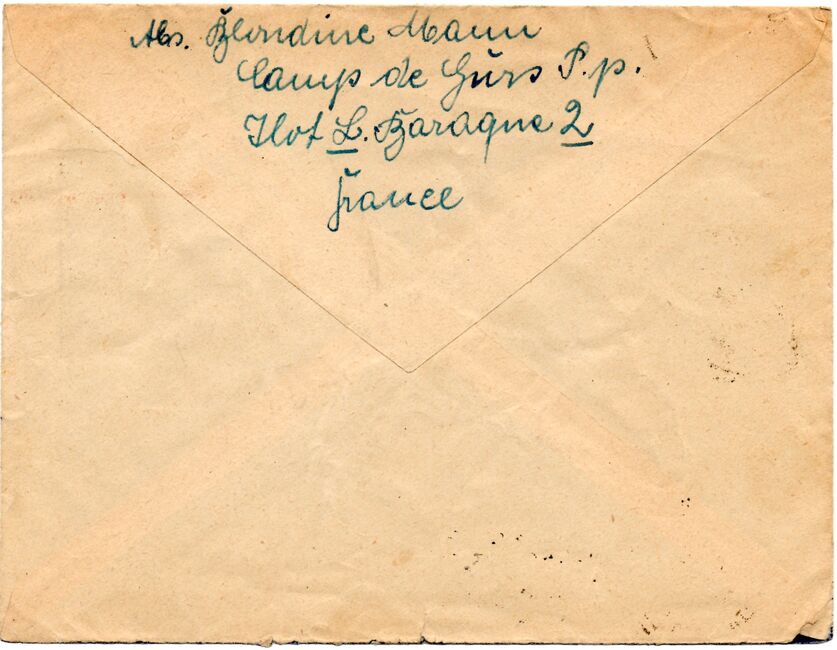 Abs. Blondine Maun
Camp de Gürs P.p.
Ilot L. Baraque 2
France